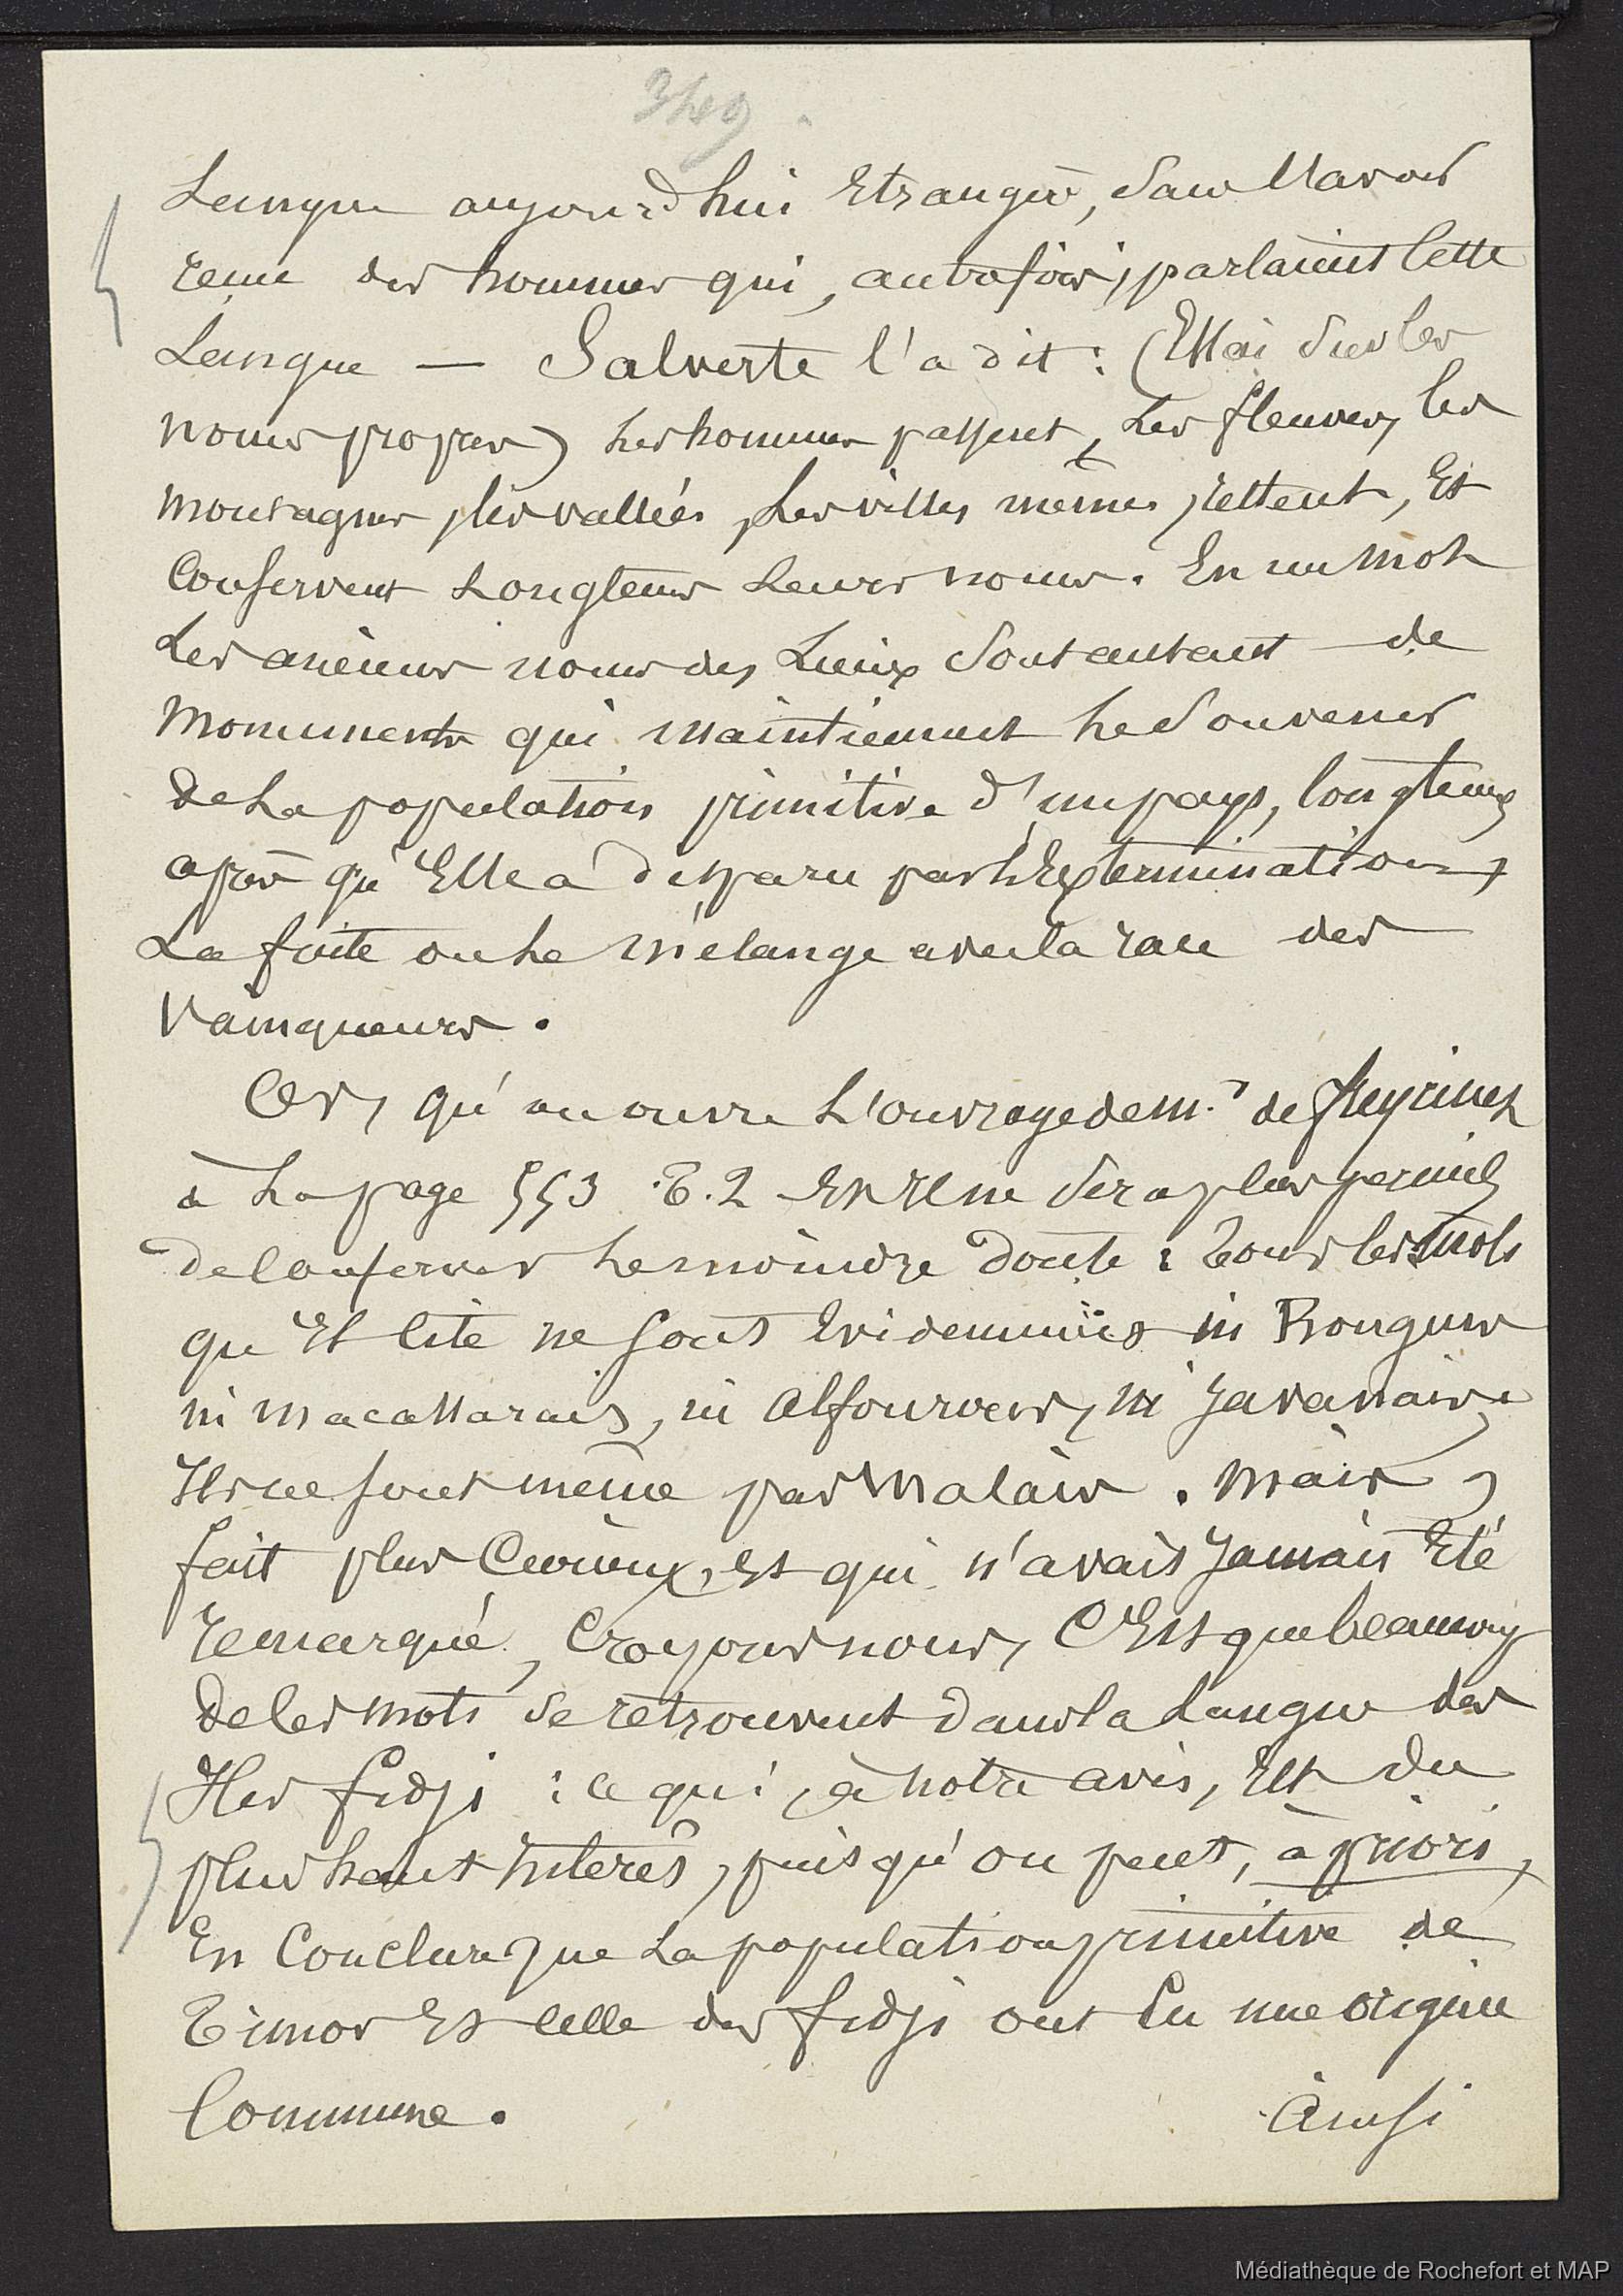 349.
Langue aujourd'hui Etrangère, sans l'avoir
reçue des hommes qui, autrefois, parlaient cette
Langue — Salverte l'a dit : (Essai sur les
noms propres) Les hommes passent, Les fleuves, les
montagnes, les vallées, Les villes mêmes restent, Et
Conservent Longtems Leurs noms. En un mot
Les anciens noms des Lieux sont autant de
Monuments qui maintiennent Le souvenir
de La population primitive d'un pays, longtems
après qu'Elle a disparu par L'Extermination,
La fuite ou Le mélange avec la race des
Vainqueurs.
Or, qu'on ouvre L'ouvrage de Mr de freycinet
à La page 553 T. 2 Et Il ne sera plus permis
de Conserver Le moindre doute : Tous les mots
qu'Il Cite ne sont Evidemment ni Bouguis
ni Macassarais, ni Alfourous, ni Javanais,
Ils ne sont même pas Malais. Mais,
fait plus Curieux, Et qui n'avait Jamais Eté
remarqué, Croyons nous, C'Est que beaucoup
de Ces mots se retrouvent dans la Langue des
Iles fidji : ce qui, à notre avis, Est du
plus haut Intérêt, puisqu'on peut, à priori,
En Conclure que La population primitive de
Timor Et Celle des fidji ont Eu une origine
Commune.
Ainsi
Médiathèque de Rochefort et MAP